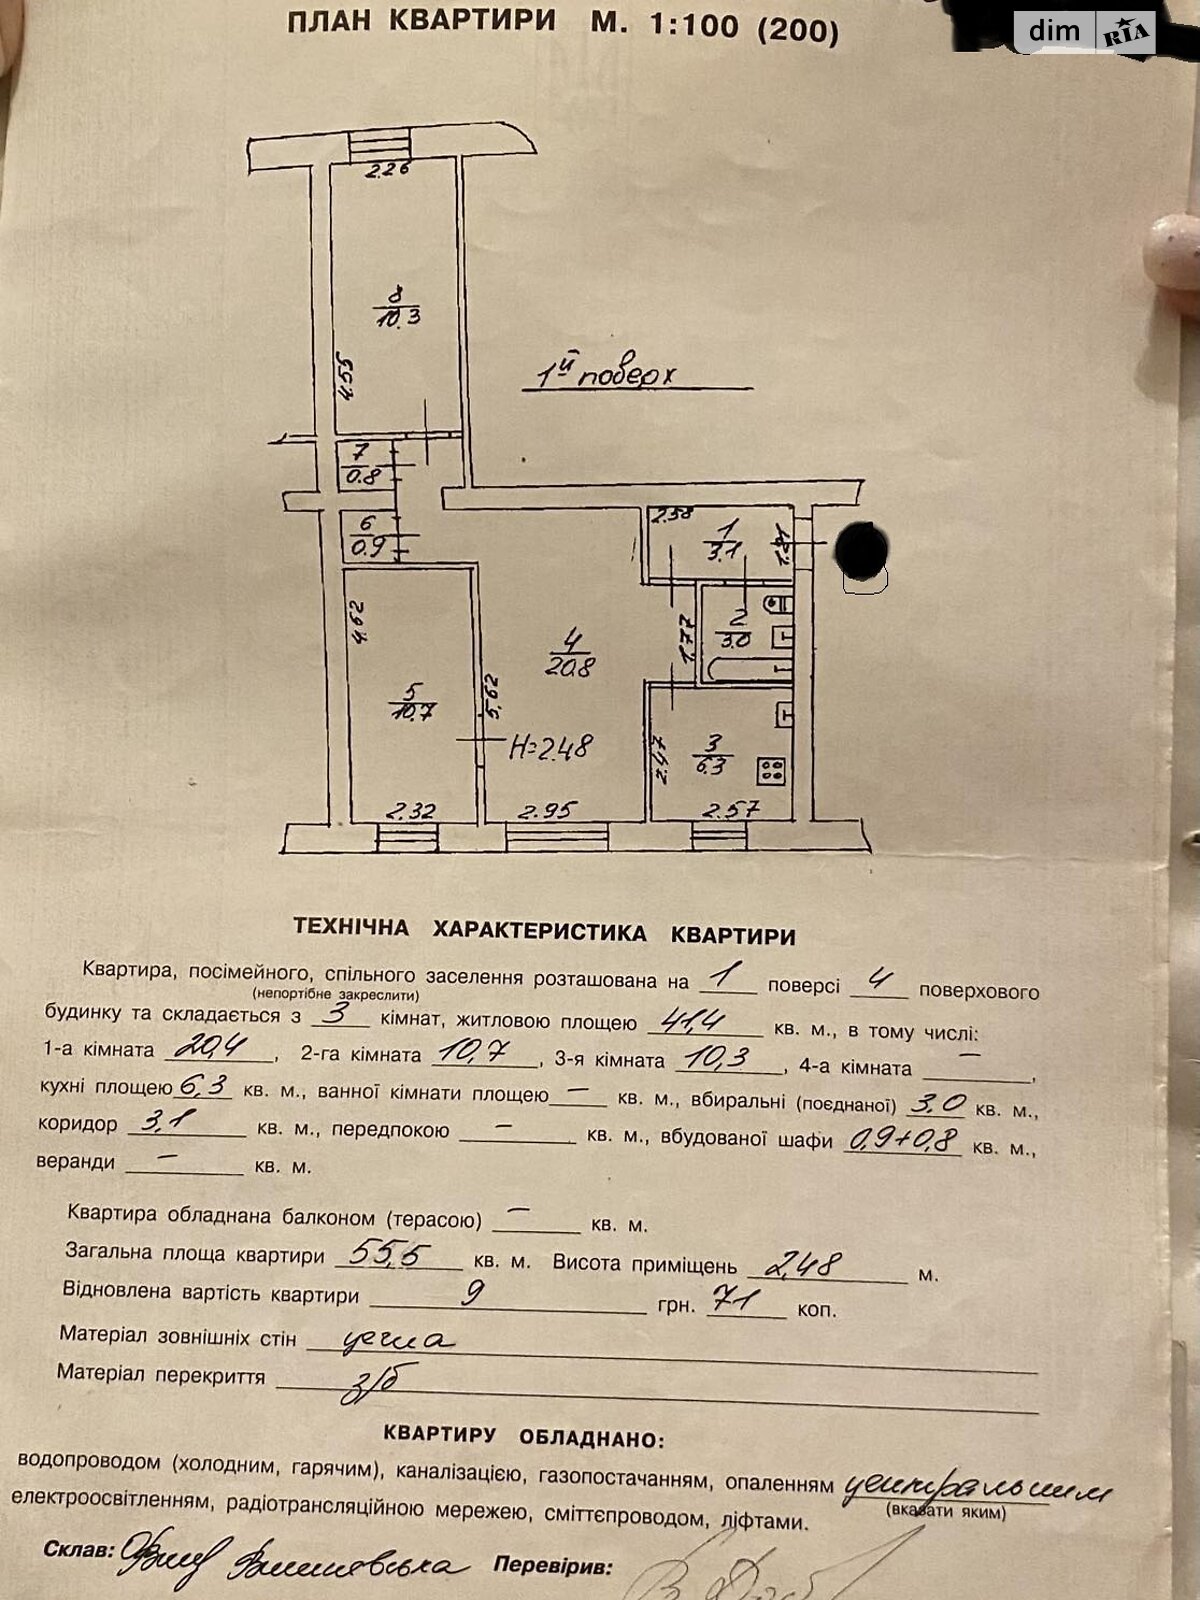 ПЛАН КВАРТИРИ М. 1:100 (200)
dim RIA
2.26
8
10.3
4.55
1й поверх
7
0.8
6
0.9
2.58
1
3.1
1.21
4.62
4
20.8
1.77
2
3.0
5
10.7
5.62
H=2.48
2.47
3
6.3
2.32
2.95
2.57
ТЕХНІЧНА ХАРАКТЕРИСТИКА КВАРТИРИ
Квартира, посімейного, спільного заселення розташована на 1 поверсі 4 поверхового
(непортібне закреслити)
будинку та складається з 3 кімнат, житловою площею 41,4 кв. м., в тому числі:
1-а кімната 20,4, 2-га кімната 10,7, 3-я кімната 10,3, 4-а кімната –,
кухні площею 6,3 кв. м., ванної кімнати площею – кв. м., вбиральні (поєднаної) 3,0 кв. м.,
коридор 3,1 кв. м., передпокою – кв. м., вбудованої шафи 0,9+0,8 кв. м.,
веранди – кв. м.
Квартира обладнана балконом (терасою) – кв. м.
Загальна площа квартири 55,5 кв. м. Висота приміщень 2,48 м.
Відновлена вартість квартири 9 грн. 71 коп.
Матеріал зовнішніх стін цегла
Матеріал перекриття з/б
КВАРТИРУ ОБЛАДНАНО:
водопроводом (холодним, гарячим), каналізацією, газопостачанням, опаленням центральним
(вказати яким)
електроосвітленням, радіотрансляційною мережею, сміттєпроводом, ліфтами.
Склав: Перевірив: